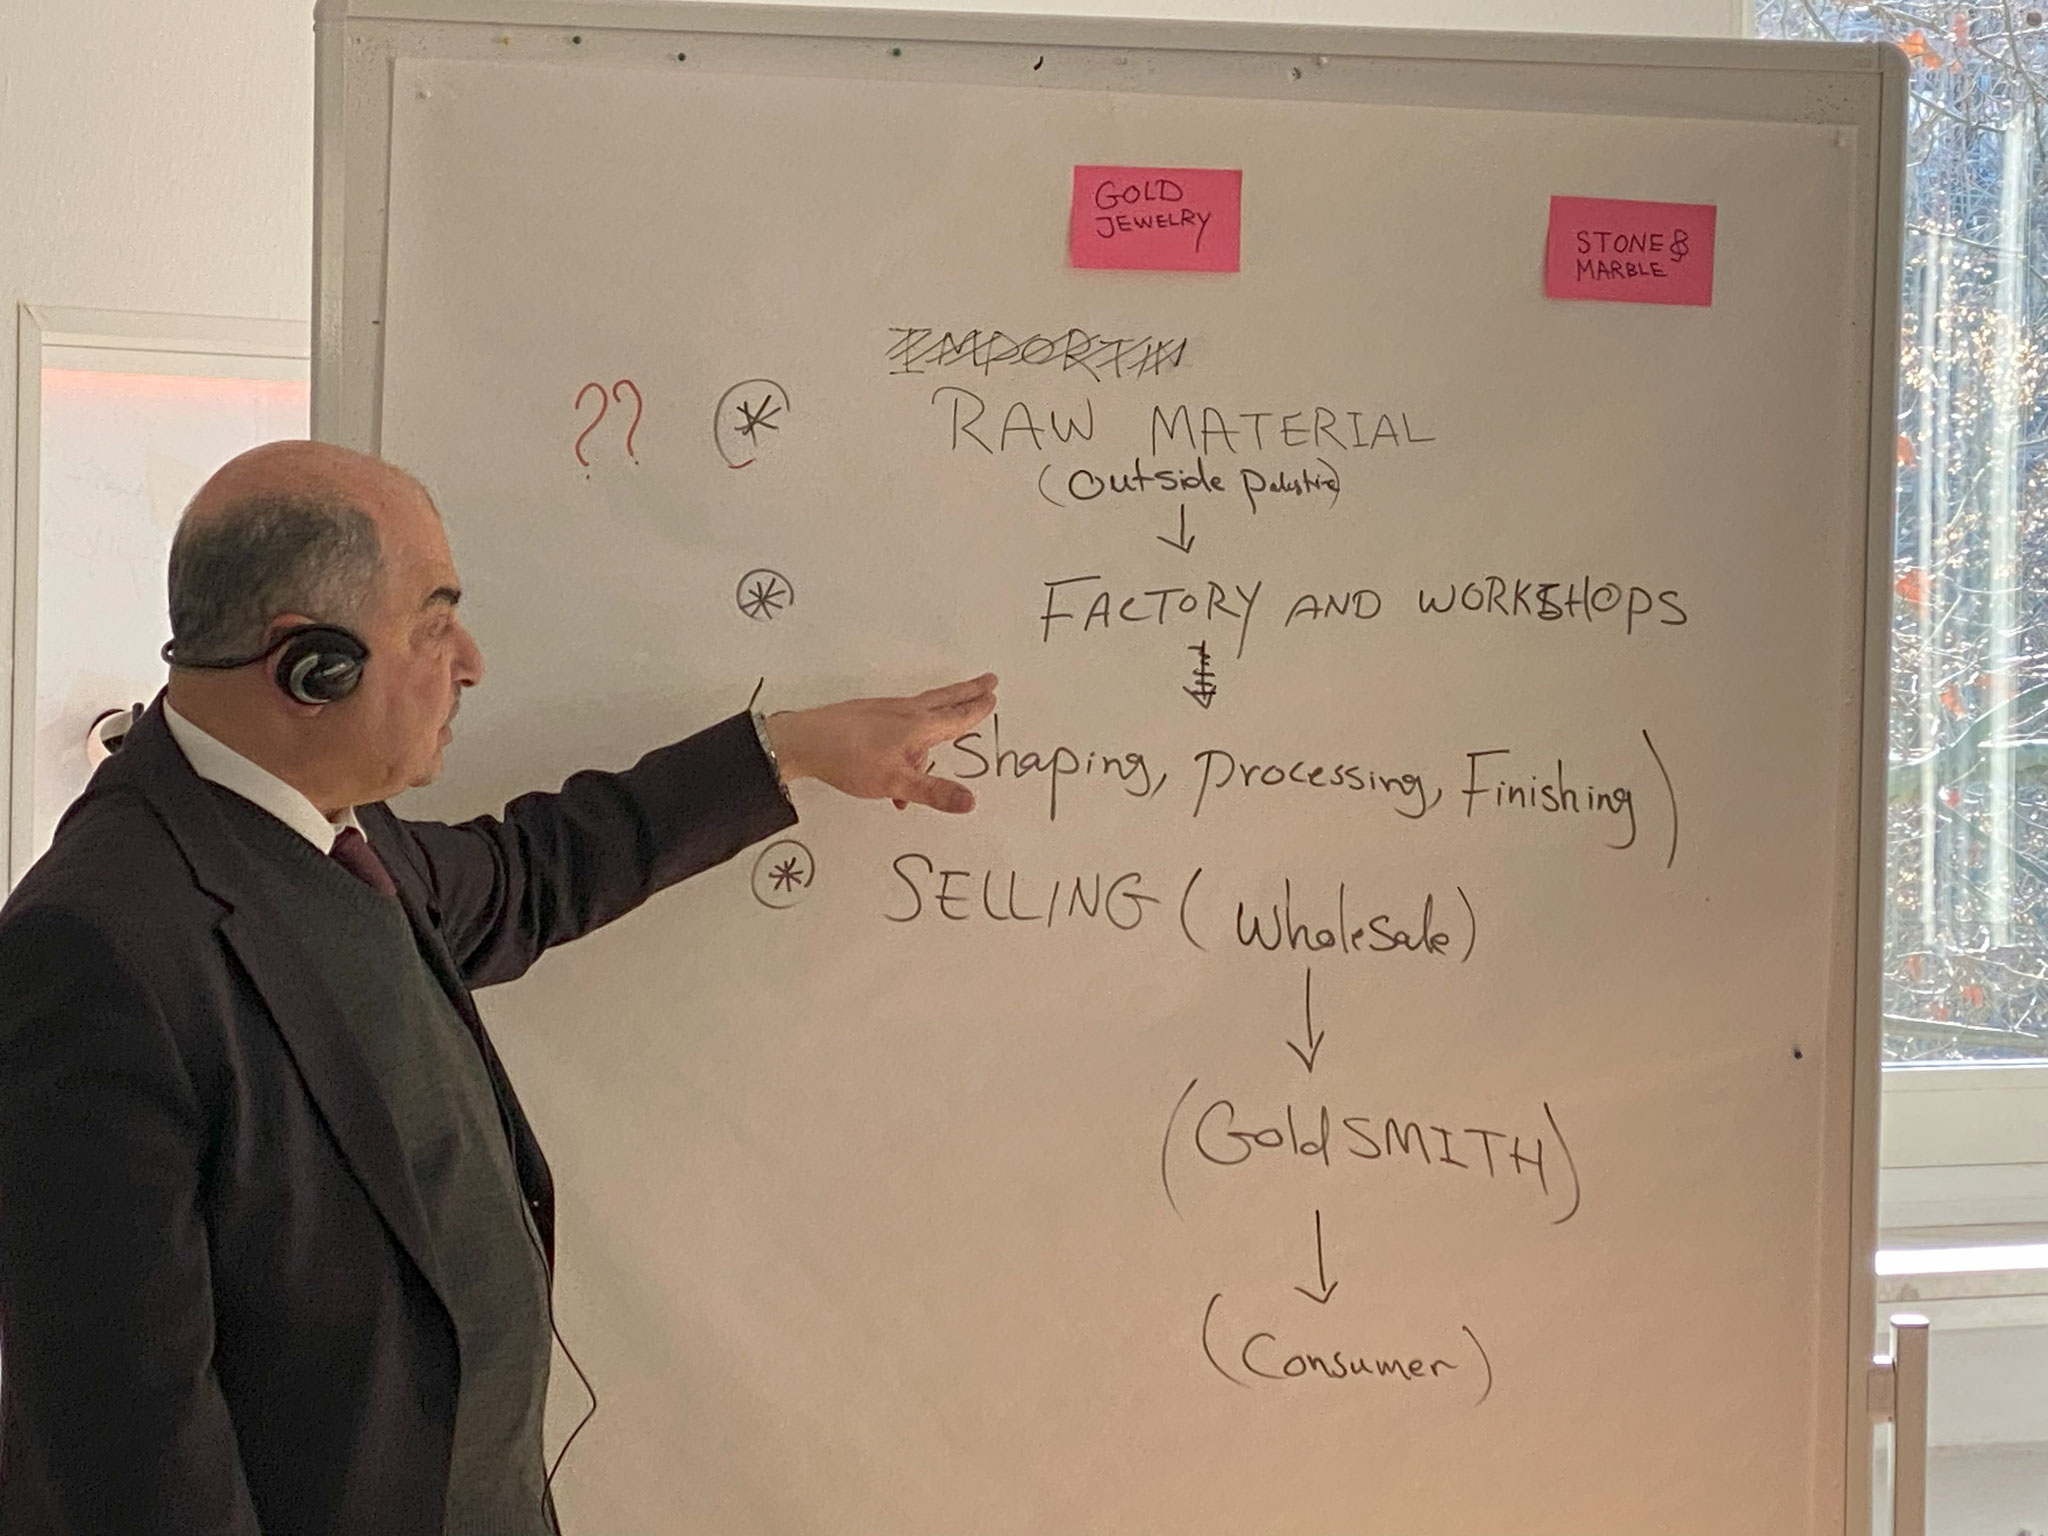 GOLD
JEWELRY
STONE &
MARBLE
??
RAW MATERIAL
(outside Palestine)
FACTORY AND WORKSHOPS
Shaping, Processing, Finishing)
SELLING (Wholesale)
(GoldSMITH)
(Consumer)